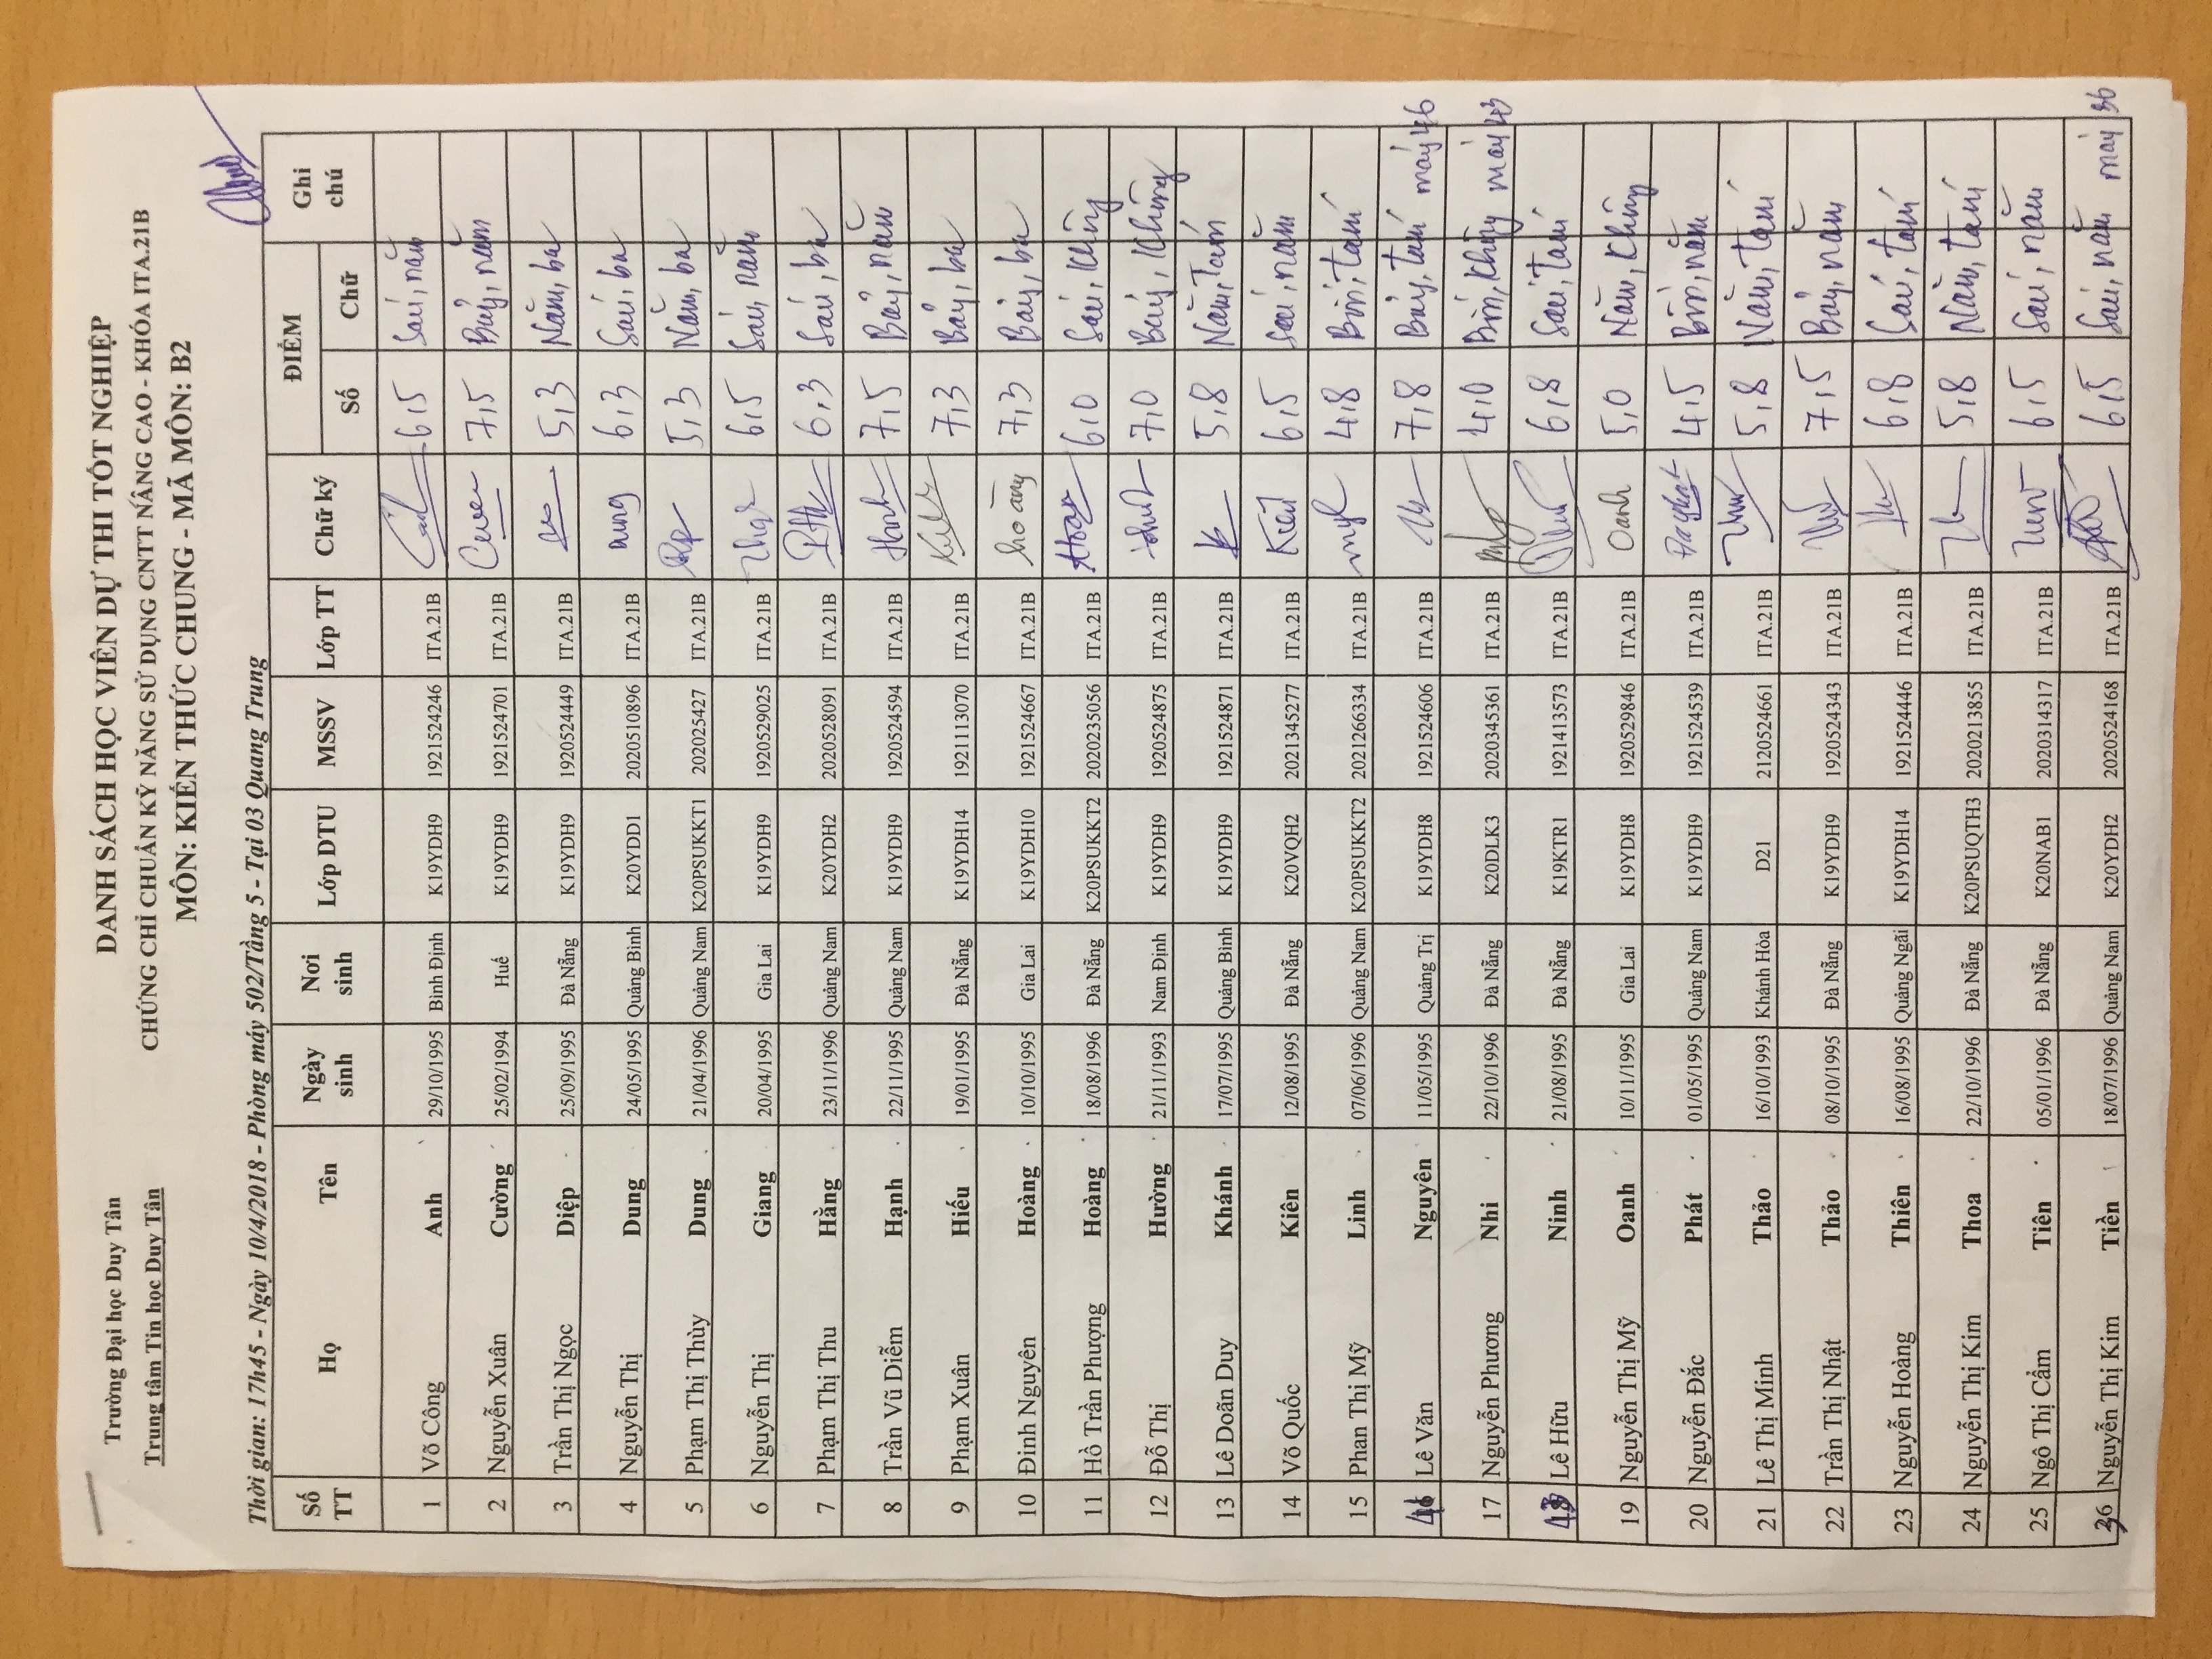 Trường Đại học Duy Tân
Trung tâm Tin học Duy Tân
DANH SÁCH HỌC VIÊN DỰ THI TỐT NGHIỆP
CHỨNG CHỈ CHUẨN KỸ NĂNG SỬ DỤNG CNTT NÂNG CAO - KHÓA ITA.21B
MÔN: KIẾN THỨC CHUNG - MÃ MÔN: B2
Thời gian: 17h45 - Ngày 10/4/2018 - Phòng máy 502/Tầng 5 - Tại 03 Quang Trung
Số TT Họ Tên Ngày sinh Nơi sinh Lớp DTU MSSV Lớp TT Chữ ký ĐIỂM Ghi chú
Số Chữ
1 Võ Công Anh 29/10/1995 Bình Định K19YDH9 1921524246 ITA.21B 6,5 Sáu, năm
2 Nguyễn Xuân Cường 25/02/1994 Huế K19YDH9 1921524701 ITA.21B 7,5 Bảy, năm
3 Trần Thị Ngọc Diệp 25/09/1995 Đà Nẵng K19YDH9 1920524449 ITA.21B 5,3 Năm, ba
4 Nguyễn Thị Dung 24/05/1995 Quảng Bình K20YDD1 2020510896 ITA.21B Dung 6,3 Sáu, ba
5 Phạm Thị Thùy Dung 21/04/1996 Quảng Nam K20PSUKKT1 202025427 ITA.21B 5,3 Năm, ba
6 Nguyễn Thị Giang 20/04/1995 Gia Lai K19YDH9 1920529025 ITA.21B 6,5 Sáu, năm
7 Phạm Thị Thu Hằng 23/11/1996 Quảng Nam K20YDH2 2020528091 ITA.21B 6,3 Sáu, ba
8 Trần Vũ Diễm Hạnh 22/11/1995 Quảng Nam K19YDH9 1920524594 ITA.21B Hạnh 7,5 Bảy, năm
9 Phạm Xuân Hiếu 19/01/1995 Đà Nẵng K19YDH14 1921113070 ITA.21B 7,3 Bảy, ba
10 Đinh Nguyên Hoàng 10/10/1995 Gia Lai K19YDH10 1921524667 ITA.21B hoàng 7,3 Bảy, ba
11 Hồ Trần Phượng Hoàng 18/08/1996 Đà Nẵng K20PSUKKT2 2020235056 ITA.21B 6,0 Sáu, không
12 Đỗ Thị Hường 21/11/1993 Nam Định K19YDH9 1920524875 ITA.21B 7,0 Bảy, không
13 Lê Doãn Duy Khánh 17/07/1995 Quảng Bình K19YDH9 1921524871 ITA.21B 5,8 Năm, Tám
14 Võ Quốc Kiên 12/08/1995 Đà Nẵng K20VQH2 2021345277 ITA.21B Kiên 6,5 Sáu, năm
15 Phan Thị Mỹ Linh 07/06/1996 Quảng Nam K20PSUKKT2 2021266334 ITA.21B 4,8 Bốn, tám
Lê Văn Nguyên 11/05/1995 Quảng Trị K19YDH8 1921524606 ITA.21B 7,8 Bảy, tám máy 46
17 Nguyễn Phương Nhi 22/10/1996 Đà Nẵng K20DLK3 2020345361 ITA.21B 4,0 Bốn, không máy 43
Lê Hữu Ninh 21/08/1995 Đà Nẵng K19KTR1 1921413573 ITA.21B 6,8 Sáu, tám
19 Nguyễn Thị Mỹ Oanh 10/11/1995 Gia Lai K19YDH8 1920529846 ITA.21B Oanh 5,0 Năm, không
20 Nguyễn Đắc Phát 01/05/1995 Quảng Nam K19YDH9 1921524539 ITA.21B 4,5 Bốn, năm
21 Lê Thị Minh Thảo 16/10/1993 Khánh Hòa D21 2120524661 ITA.21B 5,8 Năm, tám
22 Trần Thị Nhật Thảo 08/10/1995 Đà Nẵng K19YDH9 1920524343 ITA.21B 7,5 Bảy, năm
23 Nguyễn Hoàng Thiên 16/08/1995 Quảng Ngãi K19YDH14 1921524446 ITA.21B 6,8 Sáu, tám
24 Nguyễn Thị Kim Thoa 22/10/1996 Đà Nẵng K20PSUQTH3 2020213855 ITA.21B 5,8 Năm, tám
25 Ngô Thị Cẩm Tiên 05/01/1996 Đà Nẵng K20NAB1 2020314317 ITA.21B 6,5 Sáu, năm
Nguyễn Thị Kim Tiền 18/07/1996 Quảng Nam K20YDH2 2020524168 ITA.21B 6,5 Sáu, năm máy 36